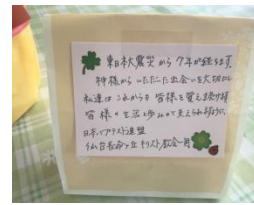 東日本大震災から7年が経ちます。
神様からいただいた出会いを大切に
私達はこれからも 皆様を覚え続け
皆様の生活と歩みが支えられ
日本バプテスト連盟
仙台長命ヶ丘キリスト教会一同